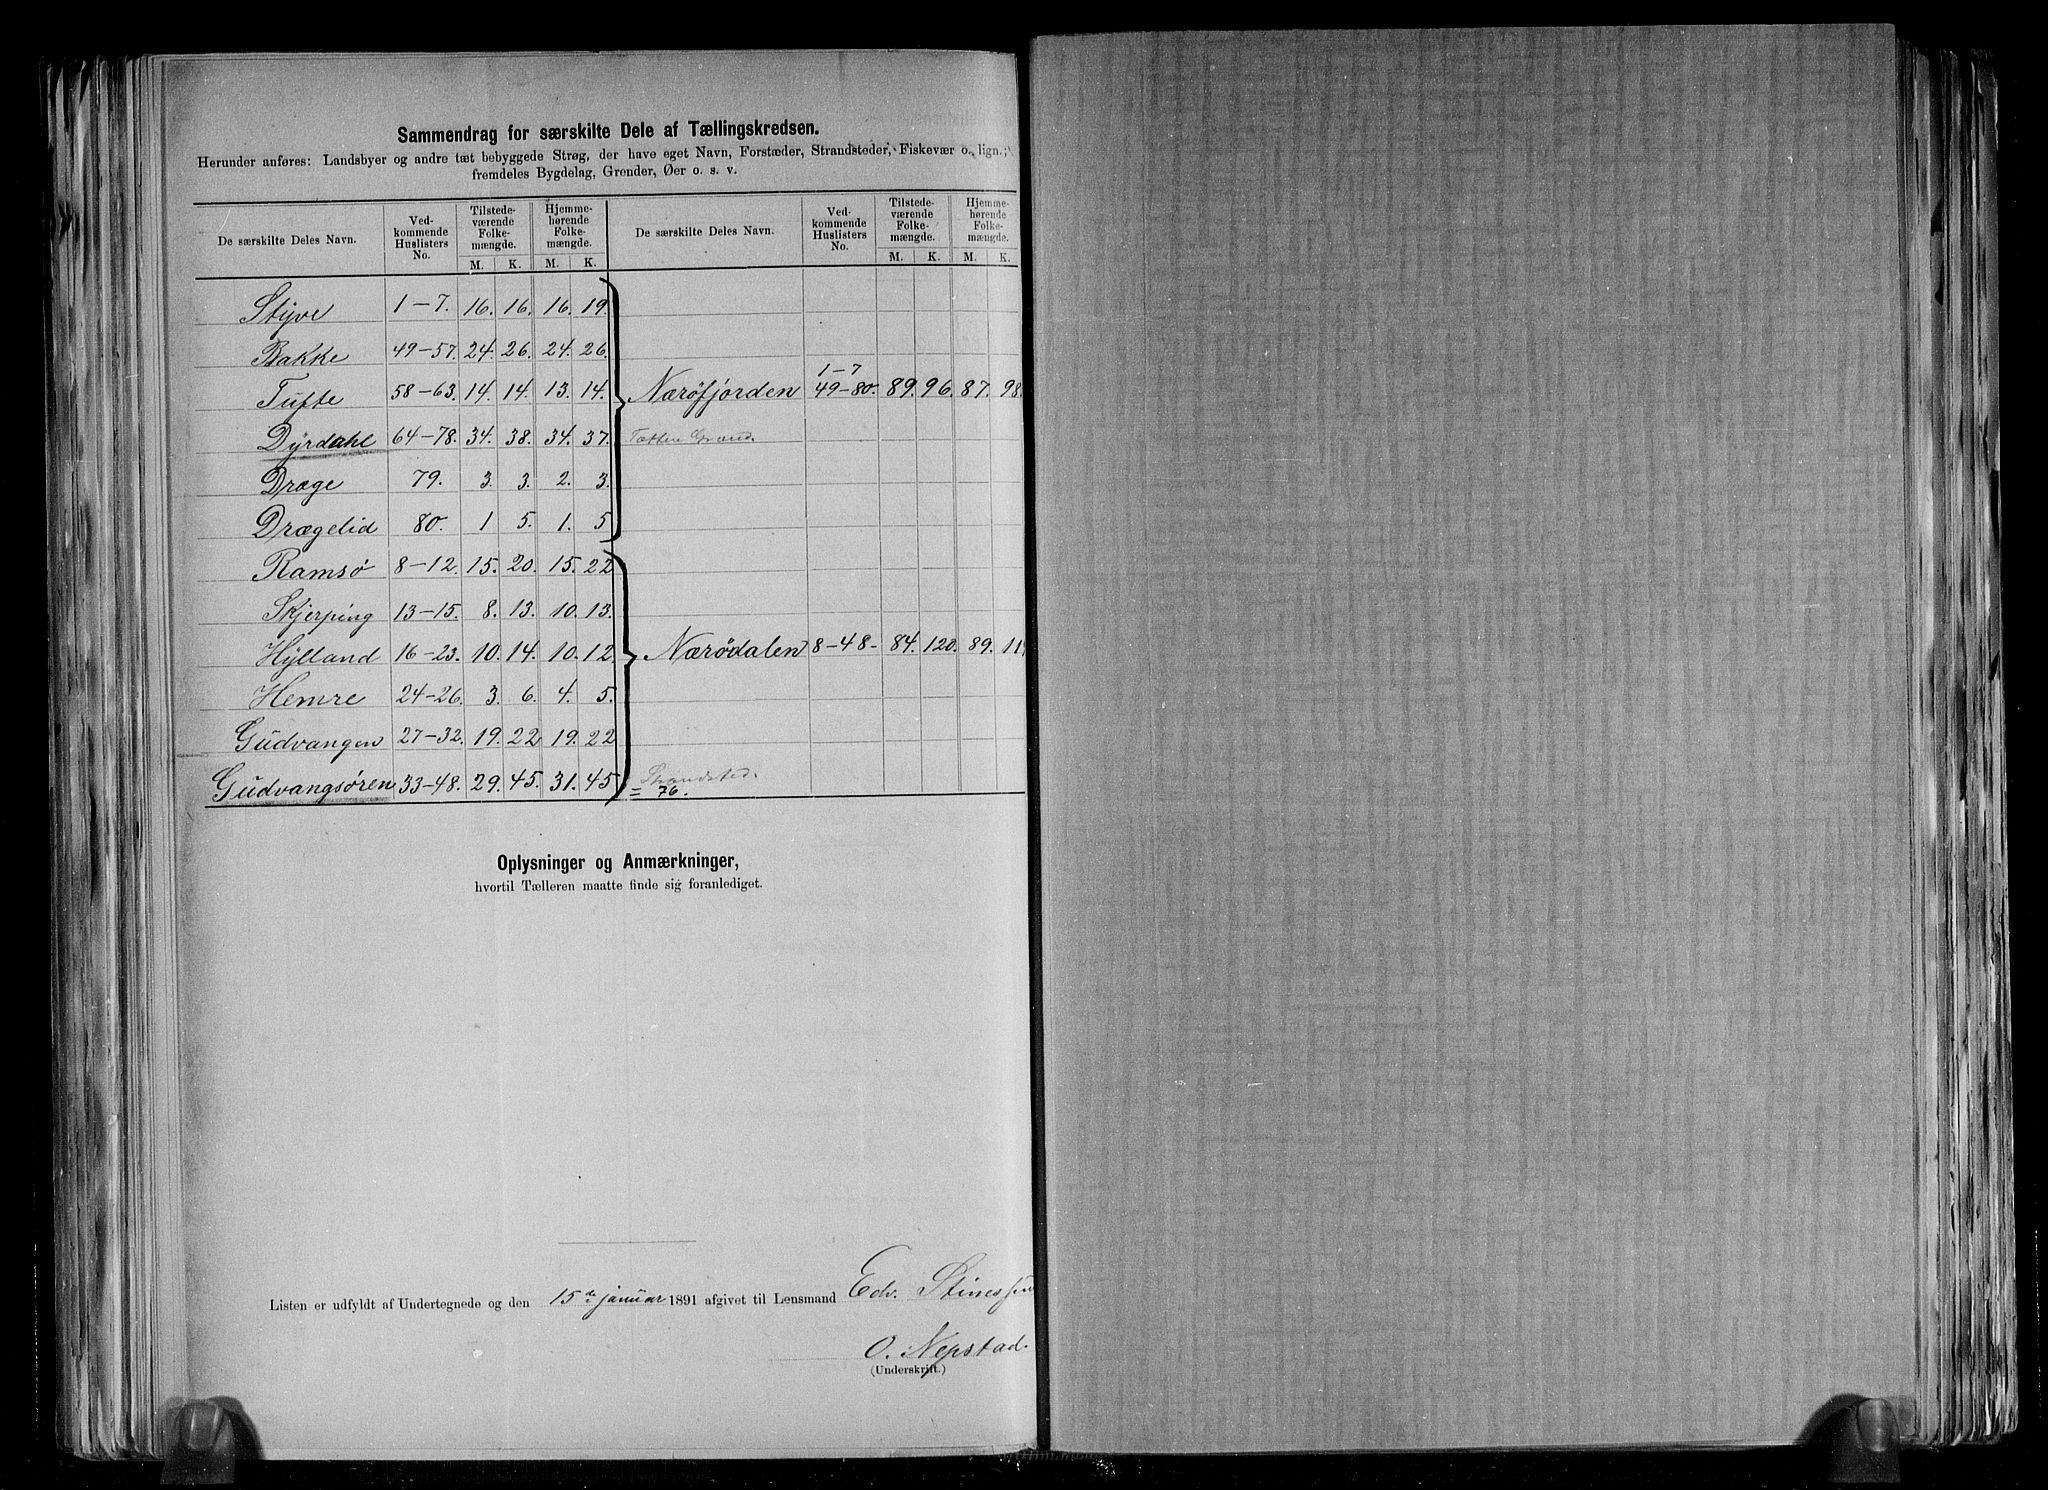 Sammendrag for særskilte Dele af Tællingskredsen.
Herunder anføres: Landsbyer og andre tæt bebyggede Strøg, der have eget Navn, Forstæder, Strandsteder, Fiskevær o. lign.;
fremdeles Bygdelag, Grender, Øer o. s. v.
De særskilte Deles Navn. Ved-kommende Huslisters No. Tilstede-værende Folke-mængde. Hjemme-hørende Folke-mængde. De særskilte Deles Navn. Ved-kommende Huslisters No. Tilstede-værende Folke-mængde. Hjemme-hørende Folke-mængde.
M. K. M. K. M. K. M. K.
Styve 1-7. 16. 16. 16. 19.
Bakke 49-57. 24. 26. 24. 26.
1-7
Tufte 58-63. 14. 14. 13. 14. Nærøfjorden 49-80. 89. 96. 87. 98.
Dyrdahl 64-78. 34. 38. 34. 37. Tættere Grænd.
Drage 79. 3. 3. 2. 3.
Drægelid 80. 1 5. 1. 5
Ramsø 8-12. 15. 20. 15. 22
Skjerping 13-15. 8. 13. 10. 13.
Hylland 16-23. 10. 14. 10. 12. Nærødalen 8-48- 84. 120. 89. 11
Hemre 24-26. 3. 6. 4. 5.
Gudvangen 27-32. 19. 22 19. 22
Gudvangsøren 33-48. 29. 45. 31. 45 Strandsted.
= 76.
Oplysninger og Anmærkninger,
hvortil Tælleren maatte finde sig foranlediget.
Listen er udfyldt af Undertegnede og den 15de januar 1891 afgivet til Lensmand Edv. Stinessen
O. Nepstad.
(Underskrift.)